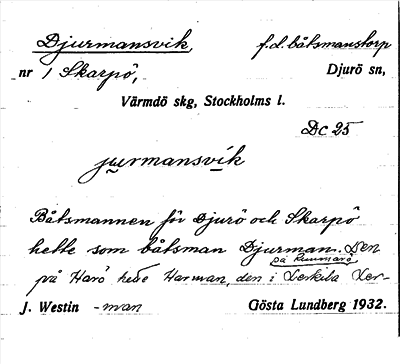 Djurmansvik f.d. båtsmanstorp
nr 1 Skarpö, Djurö sn,
Värmdö skg, Stockholms l.
Dc 25
jurmansvik
Båtsmannen för Djurö och Skarpö
hette som båtsman Djurman. Den
på Runmarö
på Harö hette Harman, den i
J. Westin -man Gösta Lundberg 1932.